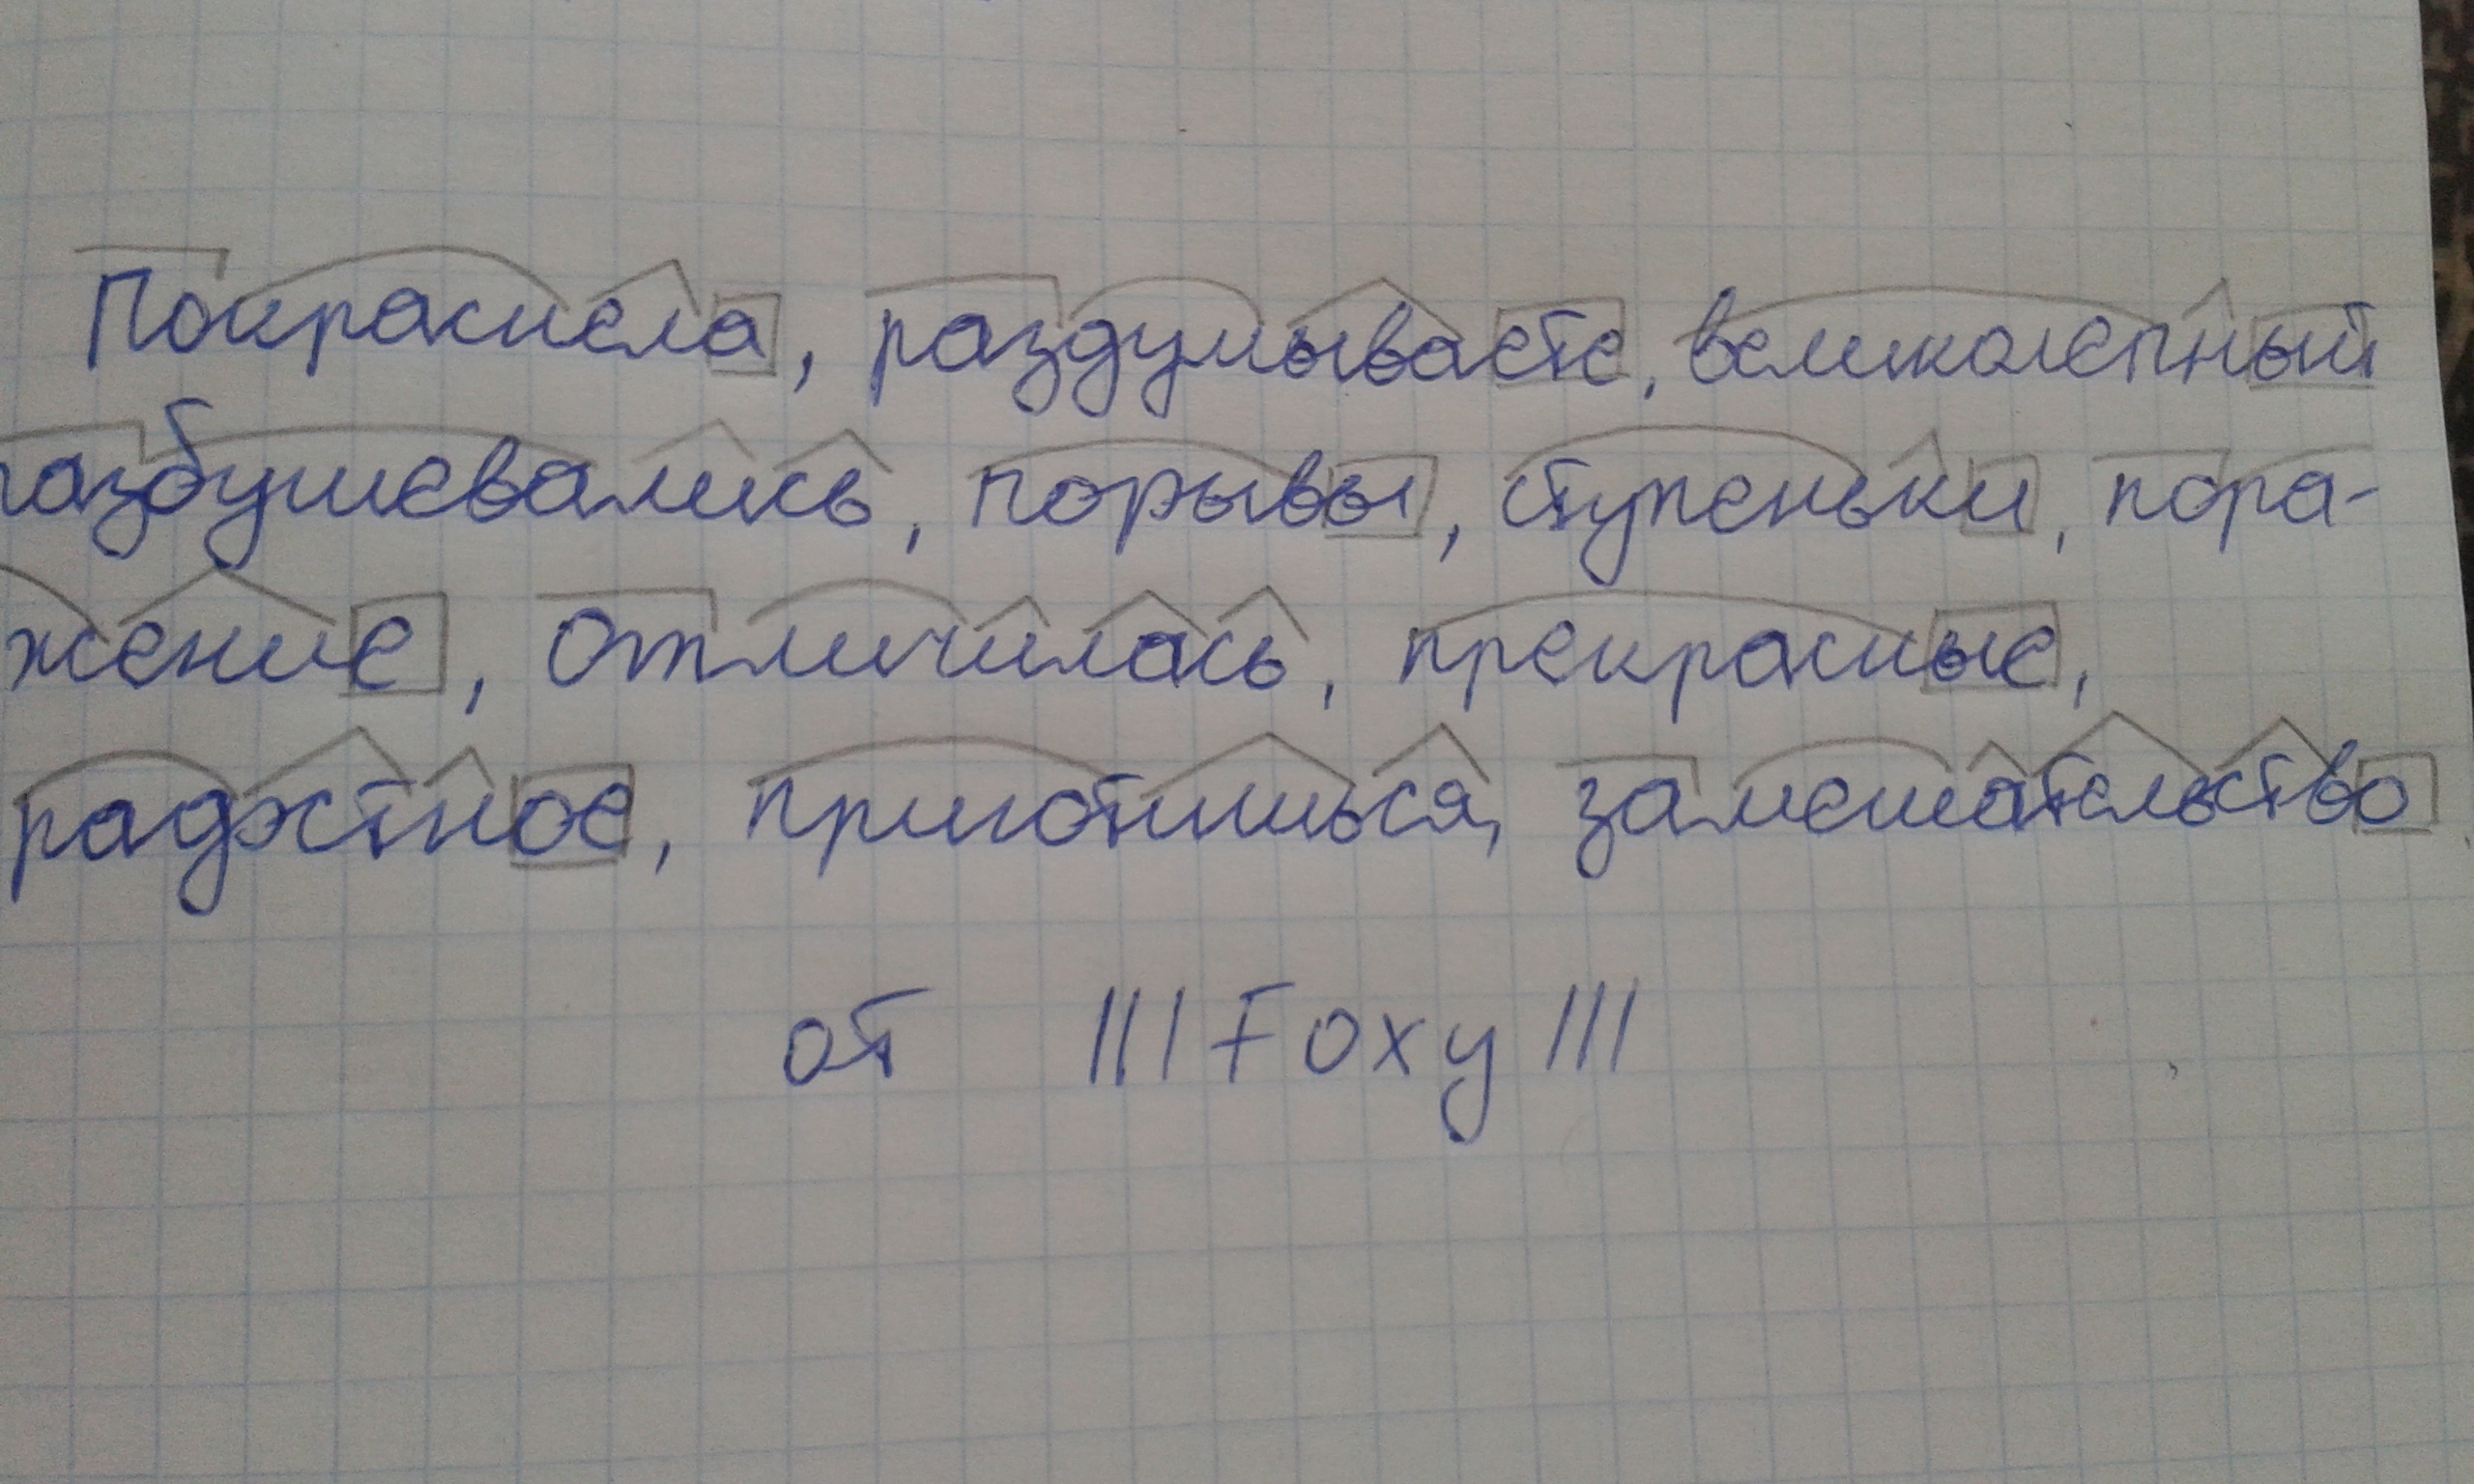 Покраснела, раздумываете, великолепный
разбушевались, порывы, ступеньки, пора-
жение, отличилась, прекрасные,
радостное, приготишься, замешательство
от III Foxy III